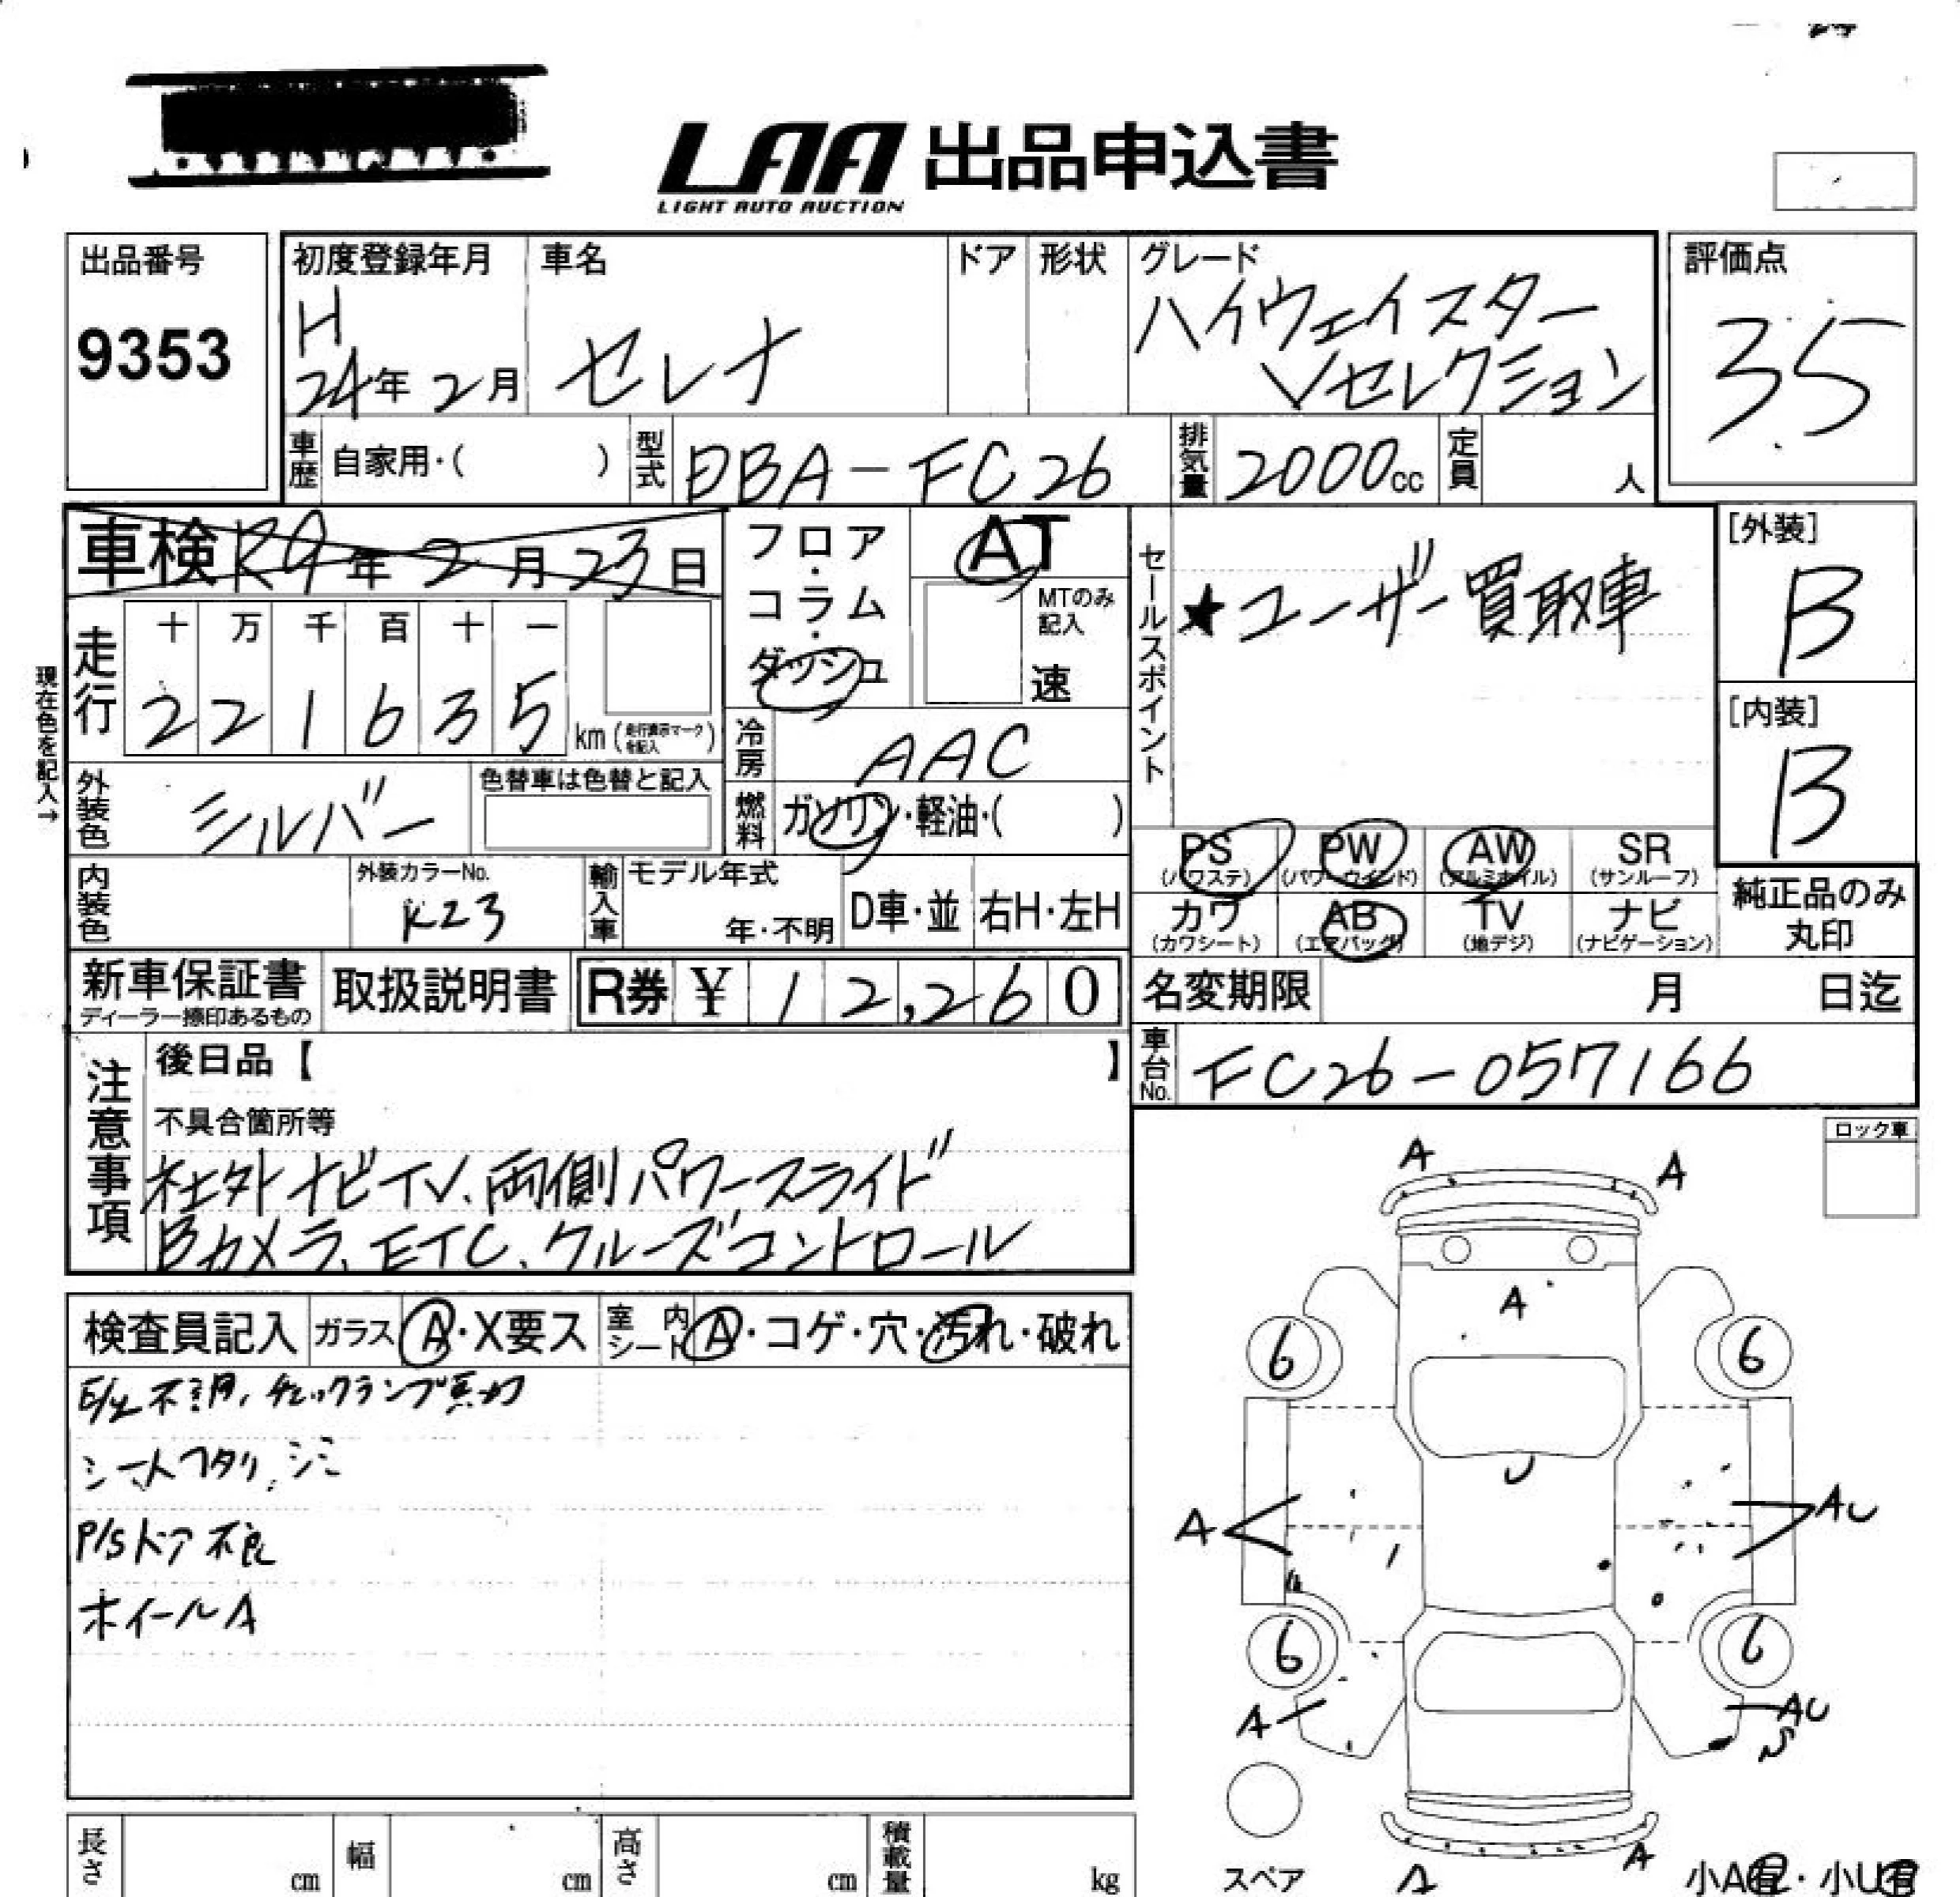 LAA 出品申込書
LIGHT AUTO AUCTION
出品番号
9353
初度登録年月
H
24年 2月
車名
セレナ
ドア
形状
グレード
ハイウェイスター
Vセレクション
評価点
3.5
車歴 自家用・( )
型式 DBA-FC26
排気量 2000cc
定員 人
車検 R9年 2月 23日
フロア・コラム・ダッシュ
AT
MTのみ記入
速
セールスポイント
★ユーザー買取車
[外装]
B
[内装]
B
現在色を記入→
走行
十 万 千 百 十 一
2 2 1 6 3 5 km (走行表示マークを記入)
冷房 AAC
外装色 シルバー
色替車は色替と記入
燃料 ガソリン・軽油・( )
PS (パワステ)
PW (パワーウインド)
AW (アルミホイル)
SR (サンルーフ)
カワ (カワシート)
AB (エアバッグ)
TV (地デジ)
ナビ (ナビゲーション)
純正品のみ
丸印
内装色
外装カラーNo.
K23
輸入車
モデル年式
年・不明
D車・並
右H・左H
新車保証書
ディーラー捺印あるもの
取扱説明書
R券 ¥ 12,260
名変期限 月 日迄
車台No. FC26-057166
注意事項
後日品【 】
不具合箇所等
社外ナビTV、両側パワースライド
Bカメラ、ETC、クルーズコントロール
ロック車
検査員記入
ガラス A・X要ス
室内シート A・コゲ・穴・汚れ・破れ
E/g 不調、チェックランプ点灯
シートヘタリ、シミ
P/Sドア不良
ホイールA
A
A
A
6
6
U
A
AU
6
6
A
AU
S
スペア
A
A
小A有・小U有
長さ cm
幅 cm
高さ cm
積載量 kg